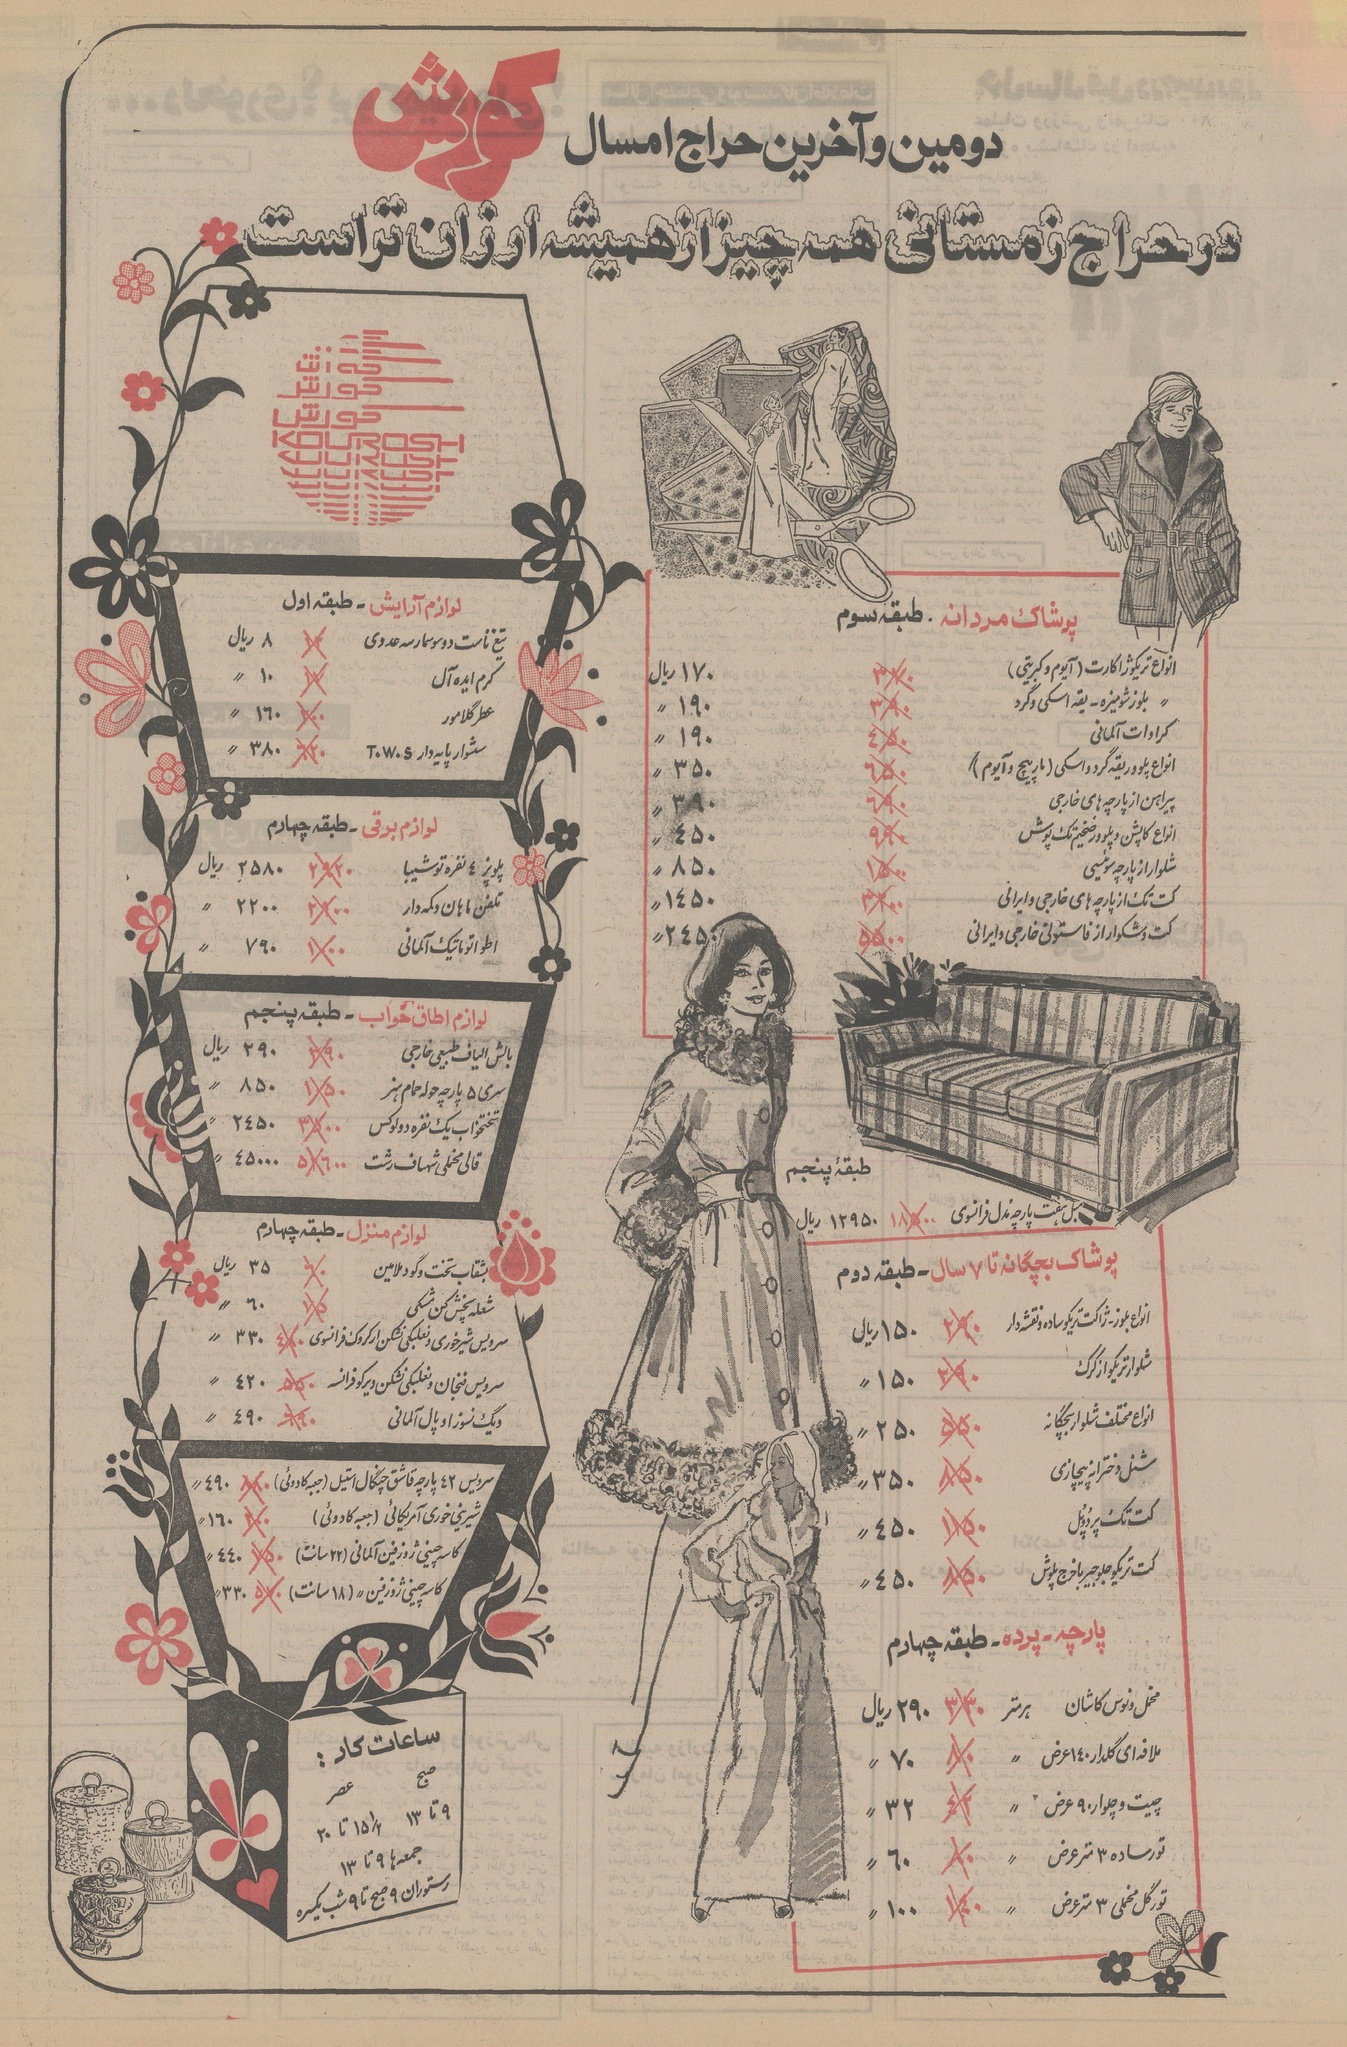 کورش
دومین و آخرین حراج امسال
در حراج زمستانی همه چیز از همیشه ارزان تر است
کورش
کورش
کورش
KOUROSH
پوشاک مردانه - طبقه سوم
انواع تریکو ژاکارت (آیوم و کبریتی) ۱۷۰ ریال
〃 بلوز شومیزه - یقه اسکی و گرد ۱۹۰ 〃
کراوات آلمانی ۴۵۰ ۱۹۰ 〃
انواع پلوور یقه گرد و اسکی (مارپیچ و آیوم) ۶۵۰ ۳۵۰ 〃
پیراهن از پارچه های خارجی ۶۹۰ ۳۹۰ 〃
انواع کاپشن و پلوور ضخیم تک پوش ۴۵۰ 〃
شلوار از پارچه سوئیسی ۸۵۰ 〃
کت تک از پارچه های خارجی و ایرانی ۱۴۵۰ 〃
کت و شلوار از فاستونی خارجی و ایرانی ۵۵۰۰ ۲۴۵۰ 〃
طبقهٔ پنجم
مبل هفت پارچه مدل فرانسوی ۱۸۵۰۰ ۱۲۹۵۰ ریال
پوشاک بچگانه تا ۷ سال - طبقه دوم
انواع بلوز - ژاکت تریکو ساده و نقشه دار ۲۹۰ ۱۵۰ ریال
شلوار تریکو از کرک ۲۹۰ ۱۵۰ 〃
انواع مختلف شلوار بچگانه ۵۵۰ ۲۵۰ 〃
شنل دخترانه پیچازی ۸۵۰ ۳۵۰ 〃
کت تک پر دوبل ۴۵۰ 〃
کت تریکو جلو جیر با خرج پلوش ۸۵۰ ۴۵۰ 〃
پارچه - پرده - طبقه چهارم
مخمل ونوس کاشان هر متر ۳۳۰ ۲۹۰ ریال
ملافه ای گلدار ۱۴۰ عرض 〃 ۸۰ ۷۰ 〃
چیت و چلوار ۹۰ عرض 〃 ۴۲ ۳۲ 〃
تور ساده ۳ متر عرض 〃 ۶۰ 〃
تور گل مخملی ۳ متر عرض 〃 ۱۴۰ ۱۰۰ 〃
لوازم آرایش - طبقه اول
تیغ ناست دوسوسمار سه عددی ۸ ریال
کرم ایده آل ۱۰ 〃
عطر گلامور ۱۶۰ 〃
سشوار پایه دار T.W.S ۳۸۰ 〃
لوازم برقی - طبقه چهارم
پلوپز ۴ نفره توشیبا ۲۹۲۰ ۲۵۸۰ ریال
تلفن ماهان دکمه دار ۲۲۰۰ 〃
اطو اتوماتیک آلمانی ۷۹۰ 〃
لوازم اطاق خواب - طبقه پنجم
بالش الیاف طبیعی خارجی ۳۹۰ ۲۹۰ ریال
سری ۵ پارچه حوله حمام هنر ۸۵۰ 〃
تختخواب یک نفره دولوکس ۲۴۵۰ 〃
قالی مخملی شهباف رشت ۴۵۰۰۰ 〃
لوازم منزل - طبقه چهارم
بشقاب تخت و گود ملامین ۳۵ ریال
شعله پخش کن نسکی ۶۰ 〃
سرویس شیرخوری و نعلبکی نشکن ارکروک فرانسوی ۳۳۰ 〃
سرویس فنجان و نعلبکی نشکن ویرکو فرانسه ۵۵۰ ۴۲۰ 〃
دیگ نسوز اوپال آلمانی ۴۹۰ 〃
سرویس ۴۲ پارچه قاشق چنگال استیل (جعبه کادوئی) ۴۹۰ 〃
شیرینی خوری آمریکائی (جعبه کادوئی) ۱۶۰ 〃
کاسه چینی ژوزفین آلمانی (۲۲ سانت) ۴۴۰ 〃
کاسه چینی ژوزفین 〃 (۱۸ سانت) ۳۳۰ 〃
ساعات کار:
صبح عصر
۹ تا ۱۳ ۱۵½ تا ۲۰
جمعه ها ۹ تا ۱۳
رستوران ۹ صبح تا ۹ شب یکسره